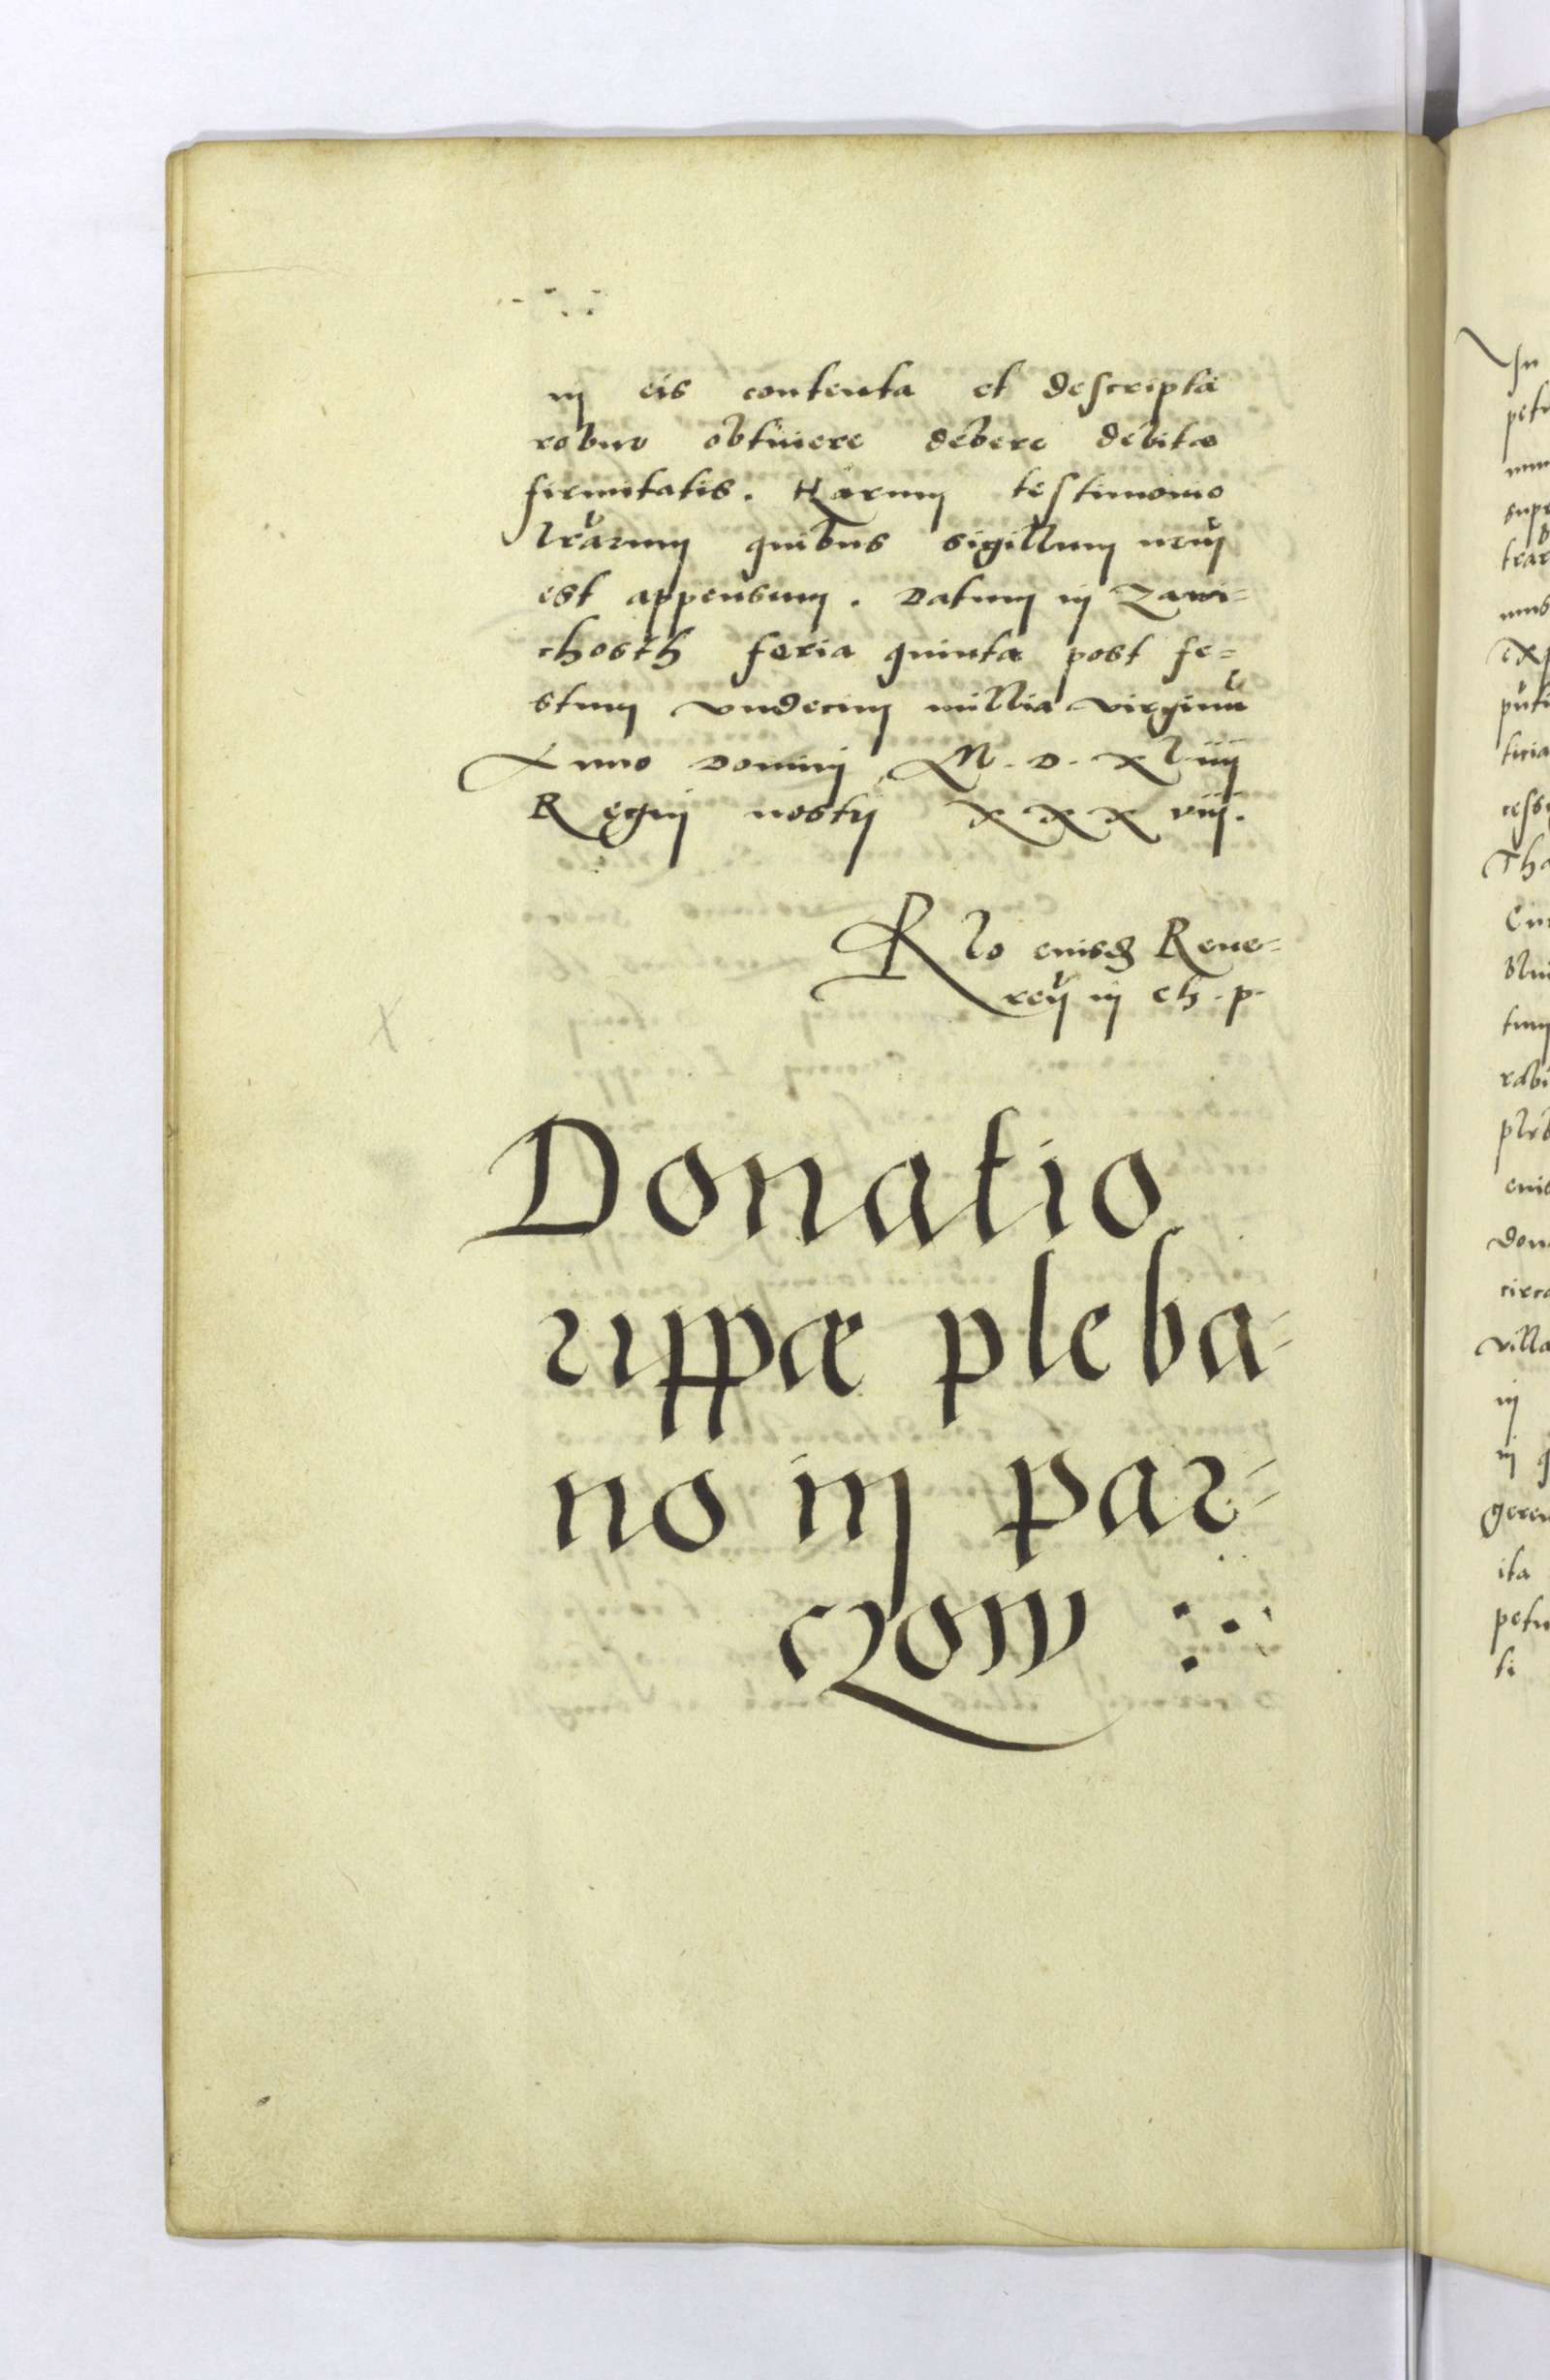 in eis contenta et descripta
robur obtinere debere debitae
firmitatis. Harum testimonio
lrarum quibus sigillum nrum
est appensum. Datum in Zawi=
chosth feria quinta post fe=
stum vndecim millia virginu
Anno Domini M. D. Xliiij
Regni nostri XXXviij.
Rlo eiusdem Reue=
ren in Ch. p.
Donatio
rippae pleba=
no in par=
czow